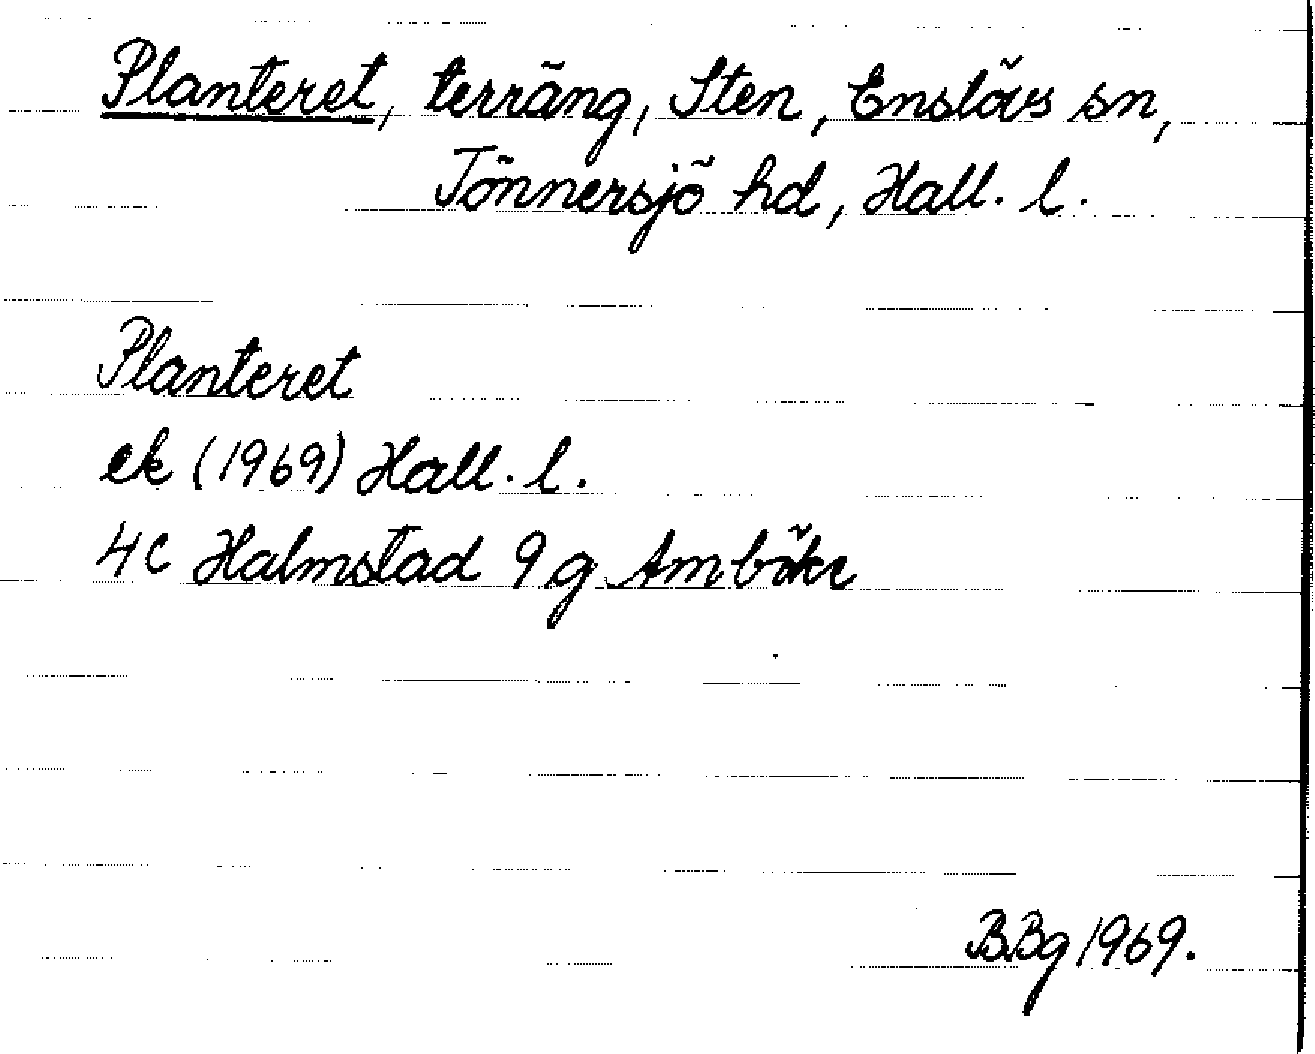 Planteret, terräng, Sten, Enslövs sn,
Tönnersjö hd, Hall. l.
Planteret
ek (1969) Hall. l.
4c Halmstad 9g Ambökе
BBg 1969.